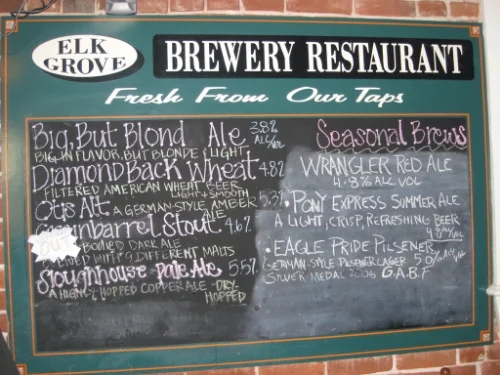 ELK GROVE
BREWERY RESTAURANT
Fresh From Our Taps
Big, But Blond Ale 3.8% ALC/VOL
BIG IN FLAVOR, BUT BLONDE & LIGHT
Diamond Back Wheat 4.8%
FILTERED AMERICAN WHEAT BEER
LIGHT & SMOOTH
Otis Alt A GERMAN-STYLE, AMBER ALE 5.3%
Stout 4.6%
BODIED DARK ALE
WITH 9 DIFFERENT MALTS
Sloughhouse Pale Ale 5.5%
A HIGHLY HOPPED COPPER ALE - DRY-HOPPED
Seasonal Brews
WRANGLER RED ALE
4.8% ALC VOL
• PONY EXPRESS SUMMER ALE
A LIGHT, CRISP, REFRESHING BEER
• EAGLE PRIDE PILSENER
GERMAN STYLE PILSENER LAGER 5.0% ALC/VOL
SILVER MEDAL 2006 G.A.B.F